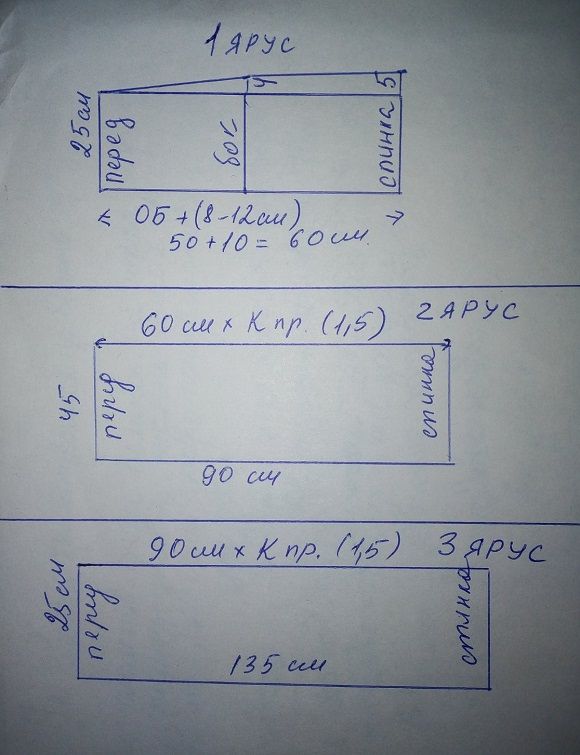 1 ЯРУС
4
5
25 см
перед
бок
спинка
ОБ + (8-12 см)
50 + 10 = 60 см.
2 ЯРУС
60 см х К пр. (1,5)
45
перед
спинка
90 см
3 ЯРУС
90 см х К пр. (1,5)
25 см
перед
спинка
135 см